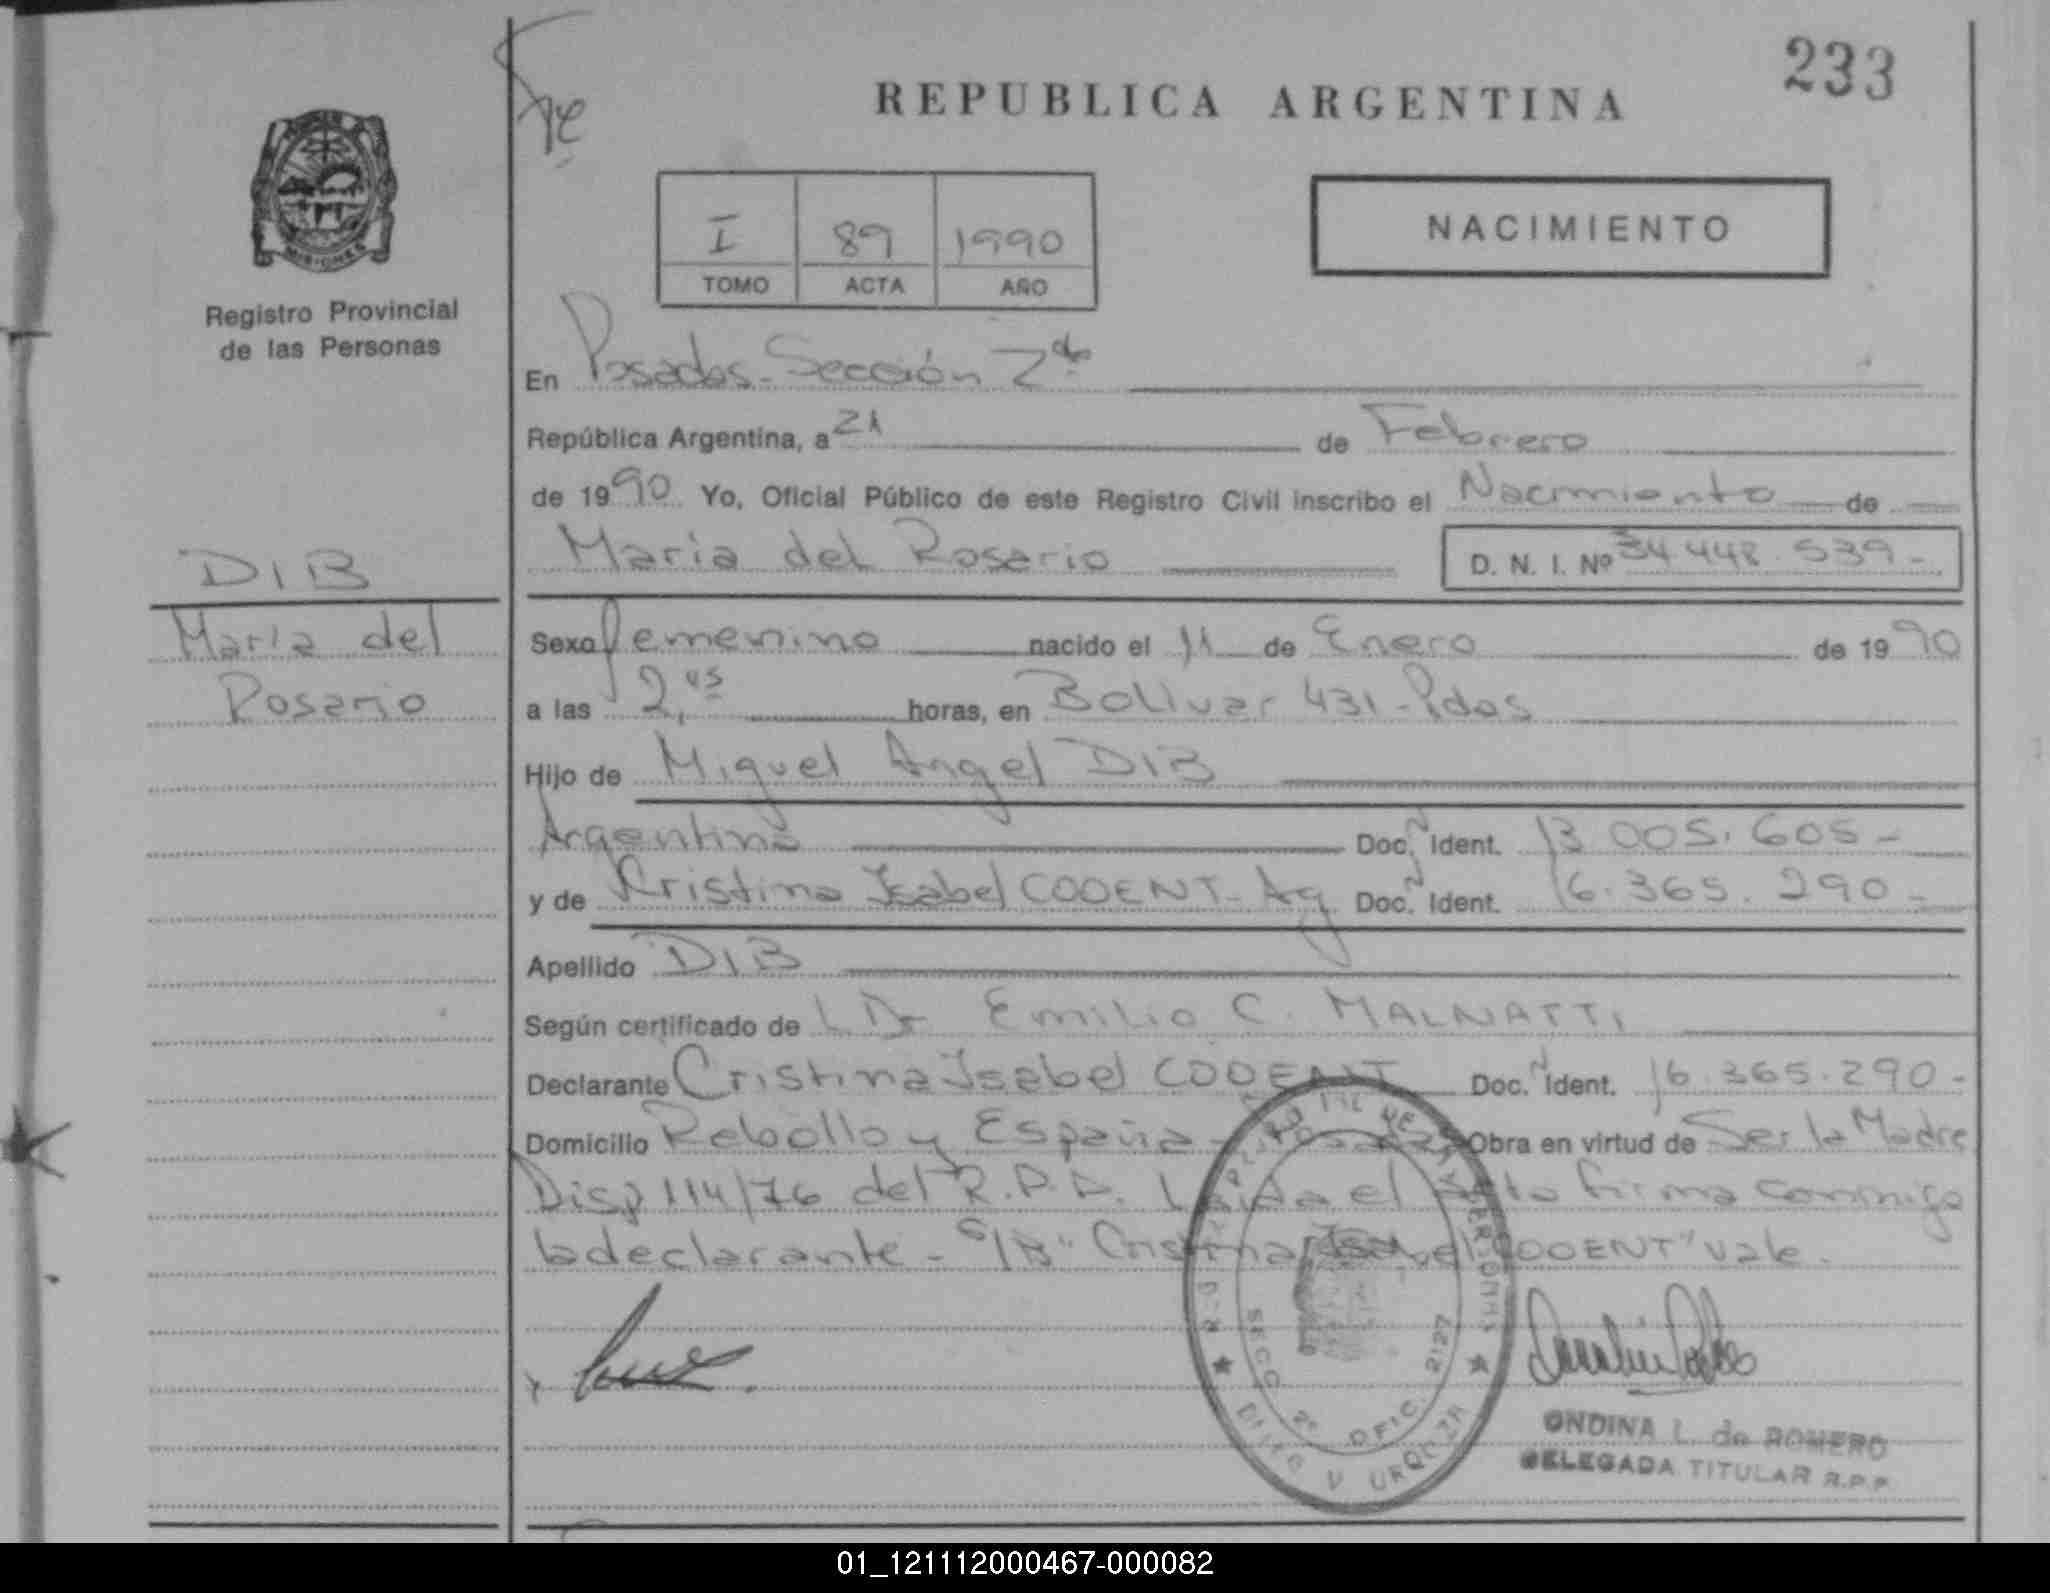 233
REPUBLICA ARGENTINA
NACIMIENTO
I 89 1990
TOMO ACTA AÑO
MISIONES
Registro Provincial
de las Personas
En Posadas - Sección 2da
República Argentina, a 21 de Febrero
de 1990 Yo, Oficial Público de este Registro Civil inscribo el Nacimiento de
Maria del Rosario D. N. I. Nº 34.448.539-
DIB
Maria del
Rosario
Sexo femenino nacido el 11 de Enero de 1990
a las 2,05 horas, en Bolivar 431 - Pdas
Hijo de Miguel Angel DIB
Argentino Doc. Ident. 13.005.605-
y de Cristina Isabel CODENT - Ag Doc. Ident. 16.365.290-
Apellido DIB
Según certificado de Dr Emilio C. MALNATTI
Declarante Cristina Isabel CODENT Doc. Ident. 16.365.290-
Domicilio Rebollo y España - Posadas Obra en virtud de Ser la Madre
Disp 114/76 del R.P.P. Leida el Acta firma conmigo
la declarante - S/B "Cristina Isabel CODENT" vale.
SECC. 2º OFIC. 2127
URQUIZA
ONDINA L. de ROMERO
DELEGADA TITULAR R.P.P.
01_121112000467-000082